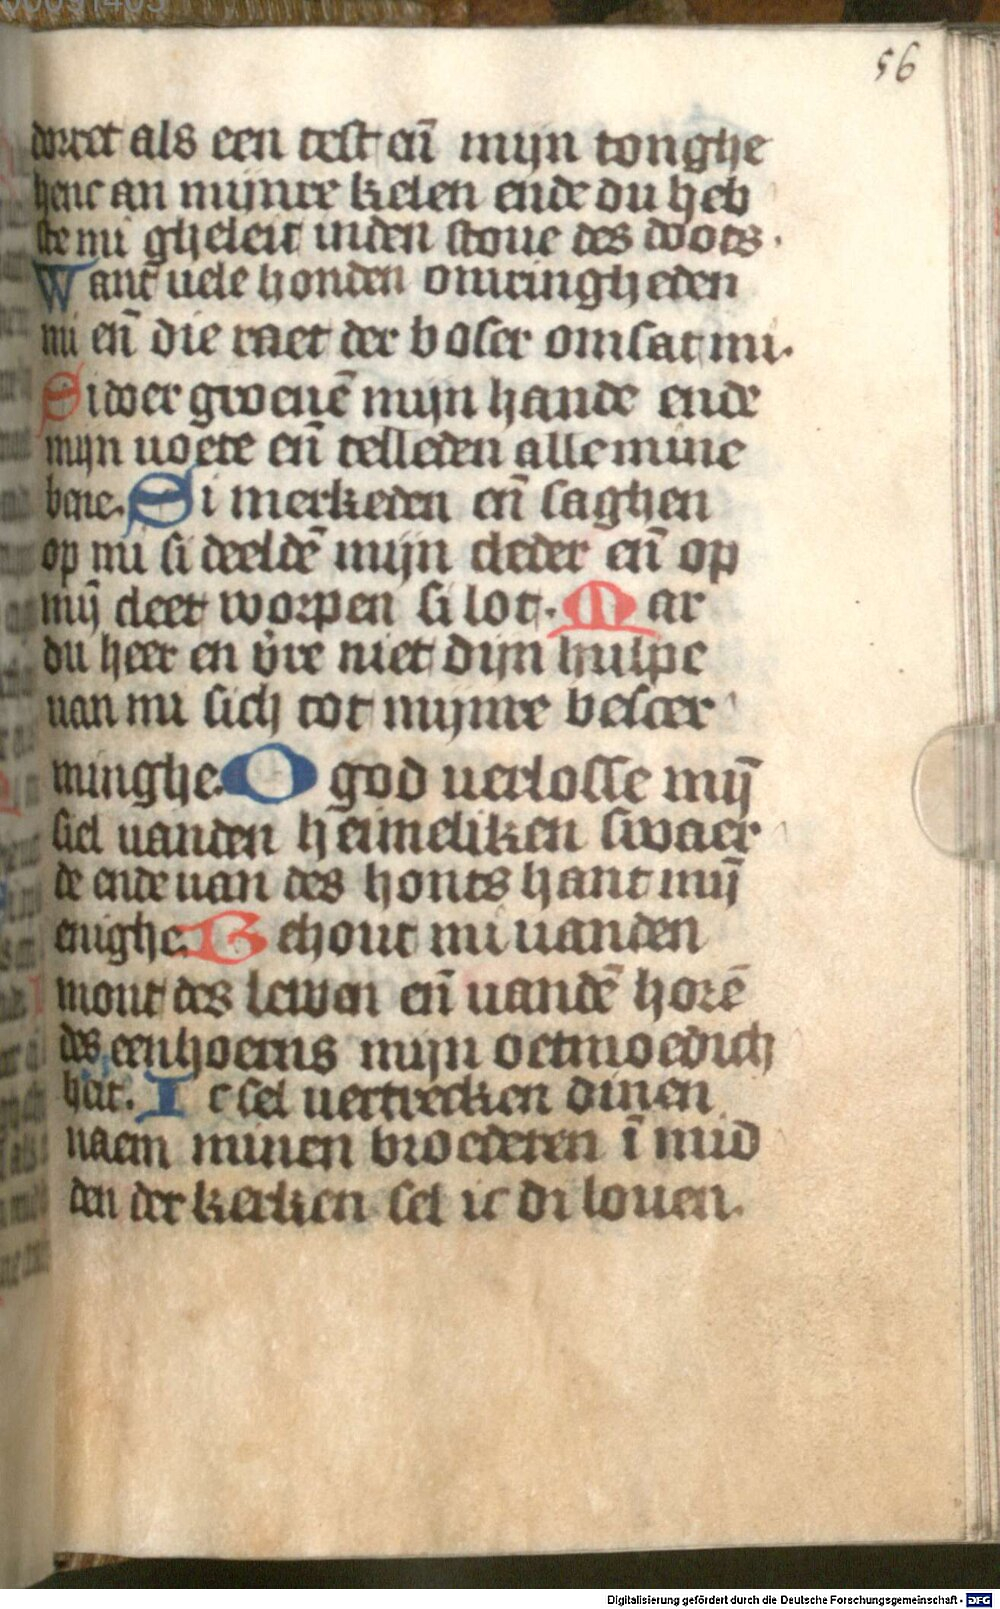 56
dorret als een test en̄ mijn tonghe
henc an mijnre kelen ende du heb
ste mi gheleit inden stoue des doots.
Want uele honden omringheden
mi en̄ die raet der boser omsat mi.
Si doer groeuē mijn hande ende
mijn uoete en̄ telleden alle mine
bene. Si merkeden en̄ saghen
op mi si deeldē mijn cleder en̄ op
mij̄ cleet worpen si lot. Mar
du heer en v̄re niet dijn hulpe
uan mi sich tot mijnre bescer
minghe. O god uerlosse mij̄
siel uanden heimeliken swaer
de ende uan des honts hant mij̄
enighe. Behout mi uanden
mont des lewen en̄ uandē horē
des eenhoerns mijn oetmoedich
heit. Ic sel uertrecken dinen
naem minen broederen ī mid
den der kerken sel ic di louen.
Digitalisierung gefördert durch die Deutsche Forschungsgemeinschaft - DFG